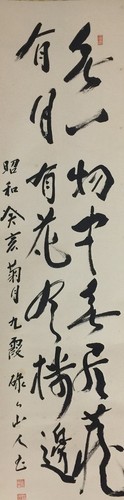 無一物中無尽蔵
有月有花有楼臺
昭和癸亥菊月 九霞 山人書